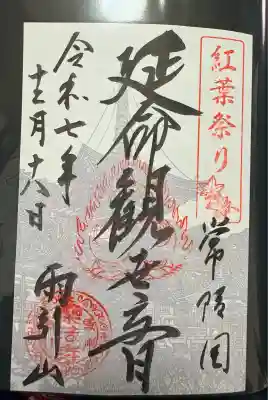 紅葉祭り
常陸国
延命観世音
令和七年
十二月十八日
雨引山